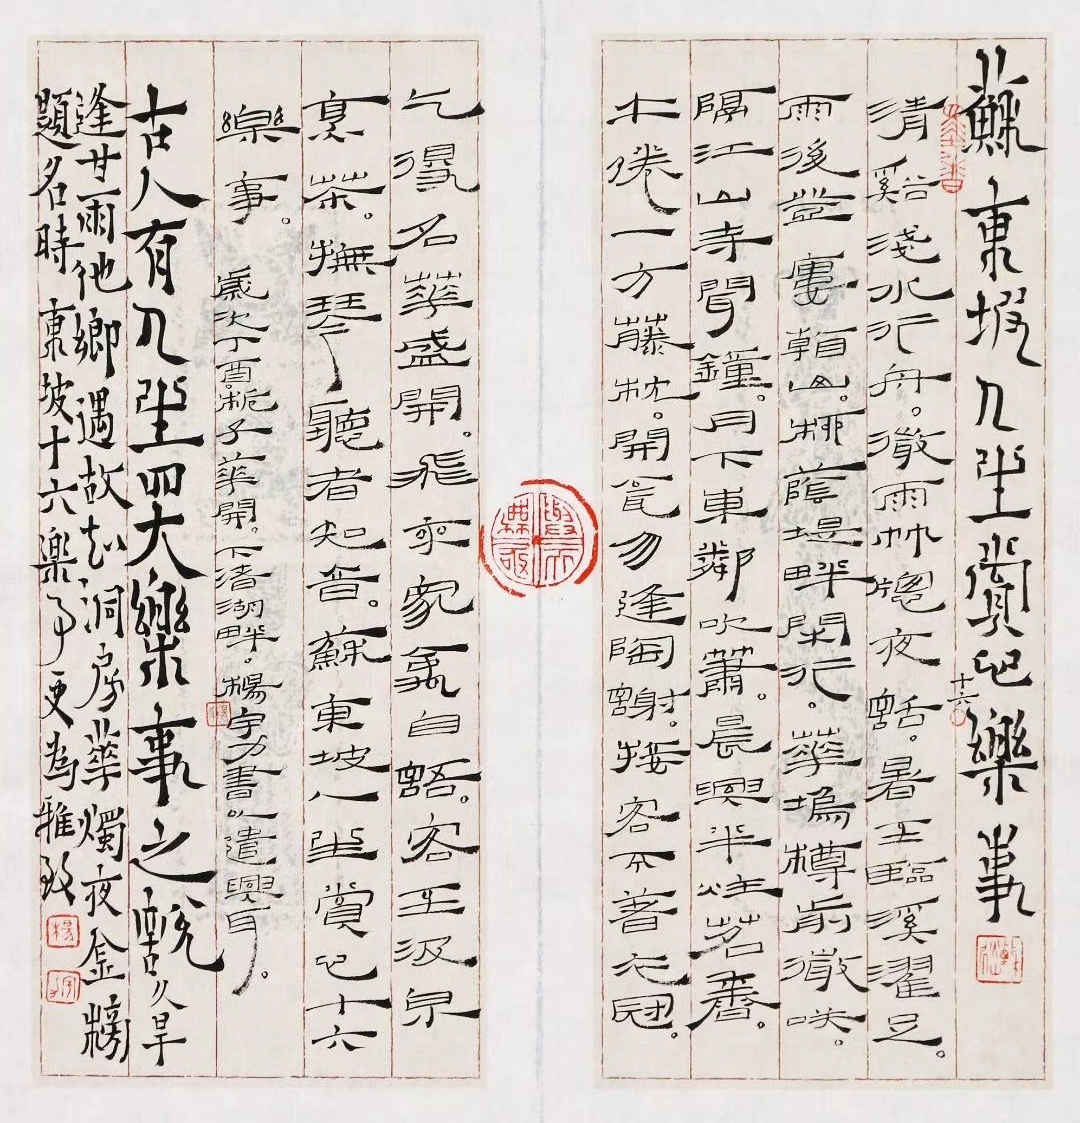 蘇東坡人生賞心樂事
十六
清谿淺水行舟。微雨竹窗夜話。暑至臨溪濯足。
雨後登樓看山。柳蔭堤畔閒行。華塢樽前微笑。
隔江山寺聞鐘。月下東鄰吹簫。晨興半炷茗香。
午倦一方藤枕。開甕勿逢陶謝。接客不著衣冠。
乞得名華盛開。飛來家禽自語。客至汲泉
烹茶。撫琴聽者知音。蘇東坡人生賞心十六
樂事。歲次丁酉梔子華開。下渚湖畔。楊宇力書以遣興耳。
古人有人生四大樂事之說久旱
逢甘雨他鄉遇故知洞房華燭夜金榜
題名時東坡十六樂事更為雅致